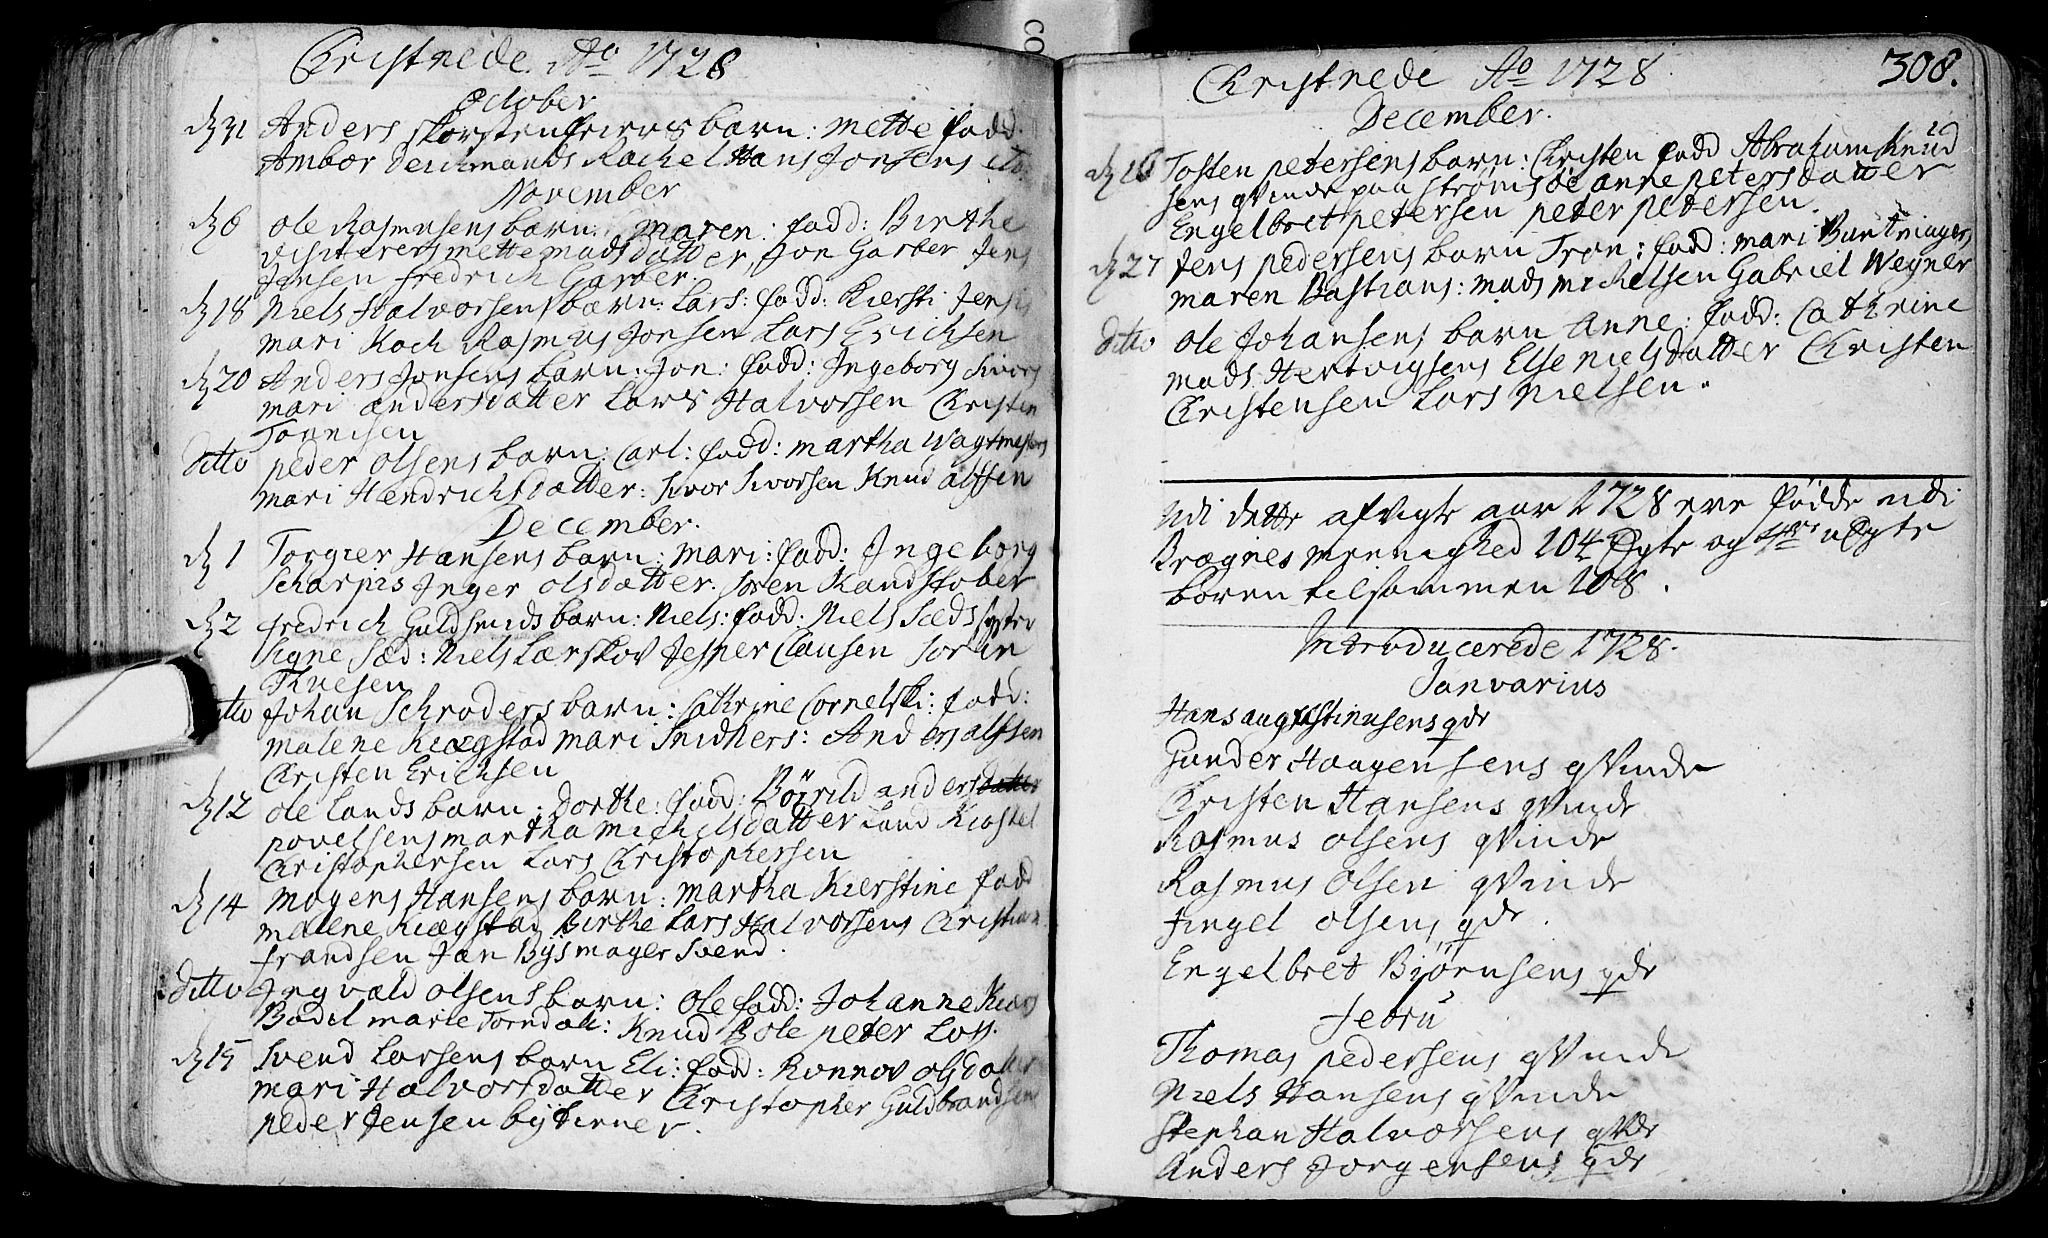 Christnede. Ao 1728
October
d 31 Anders skorstenfeiers barn: Mette fadd.
Ambor Deichmands Rachel Hans Jonsens etc.
November
d 6 Ole Rasmusens barn: Maren: fadd: Birthe
visiterers Mette Madsdatter, Jon Garber Jens
Jensen fredrich Garber.
d 18 Niels Halvorsens barn: Lars: fadd: Kiersti Jens
Mari Koch Rasmus Jonsen Lars Erichsen
d 20 Anders Jonsens barn: Jon: fadd: Ingeborg Ivors
Mari andersdatter Lars Halvorsen Christen
Tognisen
ditto peder Olsens barn: Carl: fadd: Martha Wagtmesters
Mari Hendrichsdatter: Ivor Ivorsen Knud alfsen
December.
d 1 Torgier Hansens barn: Mari: fadd: Ingeborg
Scharpis Inger Olsdatter. Soren Kandstober
d 2 fredrich Guldsmids barn: Niels: fadd: Niels Sæds syster
Signe Sæd: Niels Lærskov Jesper Clausen Soren
Thuesen
ditto Johan Schroders barn: Cathrine Cornelski: fadd:
Malene Kiægstad Mari Snidkers: Anders alfsen
Christen Erichsen
d 12 Ole Lands barn: Dorthe: fadd: Børild andersdatter
povelsens Martha Michelsdatter Land Kiostel
Christophersen Lars Christophersen
d 14 Mogens Hansens barn: Martha Kierstine fadd
Malene Kiægstad Birthe Lars Halvorsens Christian
frandsen Jan Bysmager Svend.
Ditto Ingvald Olsens barn: Ole fadd: Johanne Kiærs
Bodil Marie Torndal: Knud Bole peter Loss.
d 15 Svend Larsens barn Eli: fadd: Ronnov Olsdatter
Mari Halvorsdatter Christopher Guldbrandsen
peder Jensen bytiener.
308.
Christnede Ao 1728
December.
d 26 Tosten petersens barn: Christen fadd Abraham Knud
sens qvinde paa strømsøe anne petersdatter
Engelbret petersen peter petersen.
d 27 Jens pedersens barn Tron: fadd: Mari Buntmagers
Maren Bastians: Mads Michelsen Gabriel Wegner
ditto Ole Johansens barn Anne: fadd: Cathrine
Mads Hertvigsens Else Nielsdatter Christen
Christensen Lars Nielsen.
Udi dette afvigte aar 1728 ere fødde udi
Bragnes Menighed 104 Ægte og 4re uægte
børen tilsammen 108.
Introducerede 1728.
Janvarius
Hans augustinusens qde
Gunder Haagensens qvinde
Christen Hansens qvinde
Rasmus Olsens qvinde
Rasmus Olsen qvinde
Fingel Olsens qde.
Engelbret Biørnsens qde
Febru
Thomas pedersens qvinde
Niels Hansens qvinde
Stephan Halvorsens qvde
Anders Jorgensens qde